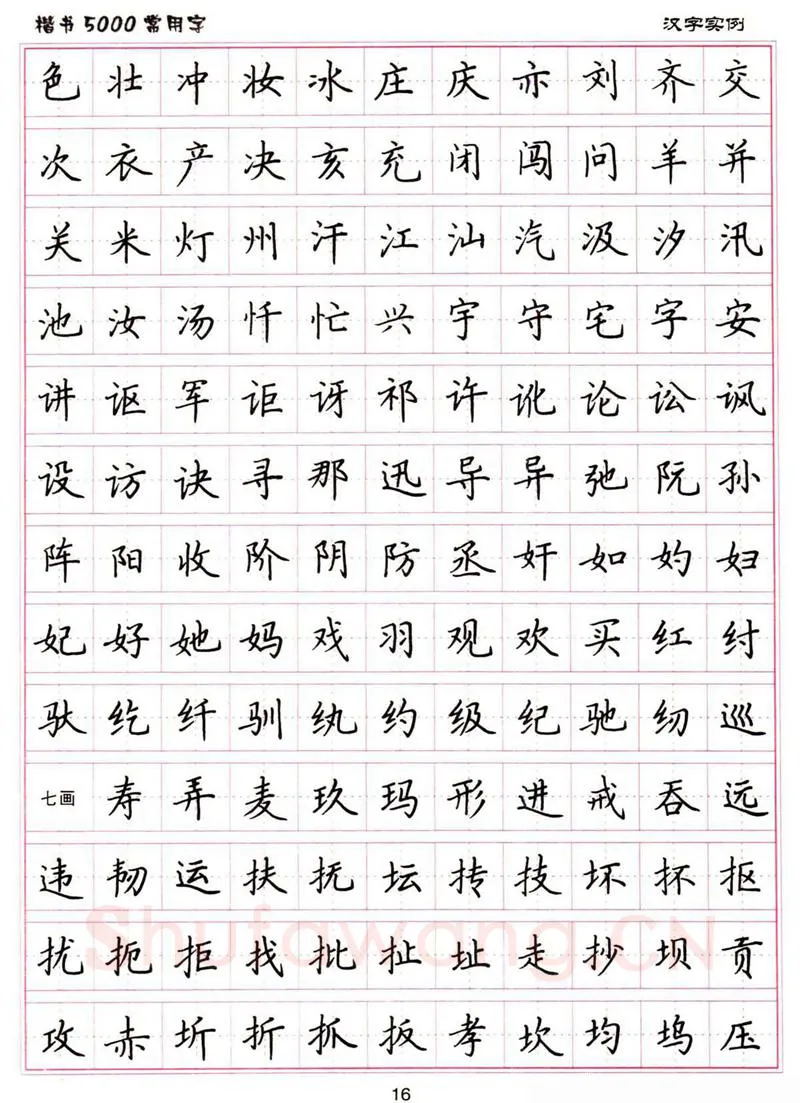 楷书5000常用字 汉字实例
色 壮 冲 妆 冰 庄 庆 亦 刘 齐 交
次 衣 产 决 亥 充 闭 闯 问 羊 并
关 米 灯 州 汗 江 汕 汽 汲 汐 汛
池 汝 汤 忏 忙 兴 宇 守 宅 字 安
讲 讴 军 讵 讶 祁 许 讹 论 讼 讽
设 访 诀 寻 那 迅 导 异 弛 阮 孙
阵 阳 收 阶 阴 防 丞 奸 如 妁 妇
妃 好 她 妈 戏 羽 观 欢 买 红 纣
驮 纥 纤 驯 纨 约 级 纪 驰 纫 巡
七画 寿 弄 麦 玖 玛 形 进 戒 吞 远
违 韧 运 扶 抚 坛 抟 技 坏 抔 抠
扰 扼 拒 找 批 扯 址 走 抄 坝 贡
攻 赤 圻 折 抓 扳 孝 坎 均 坞 压
Shufawang.CN
16